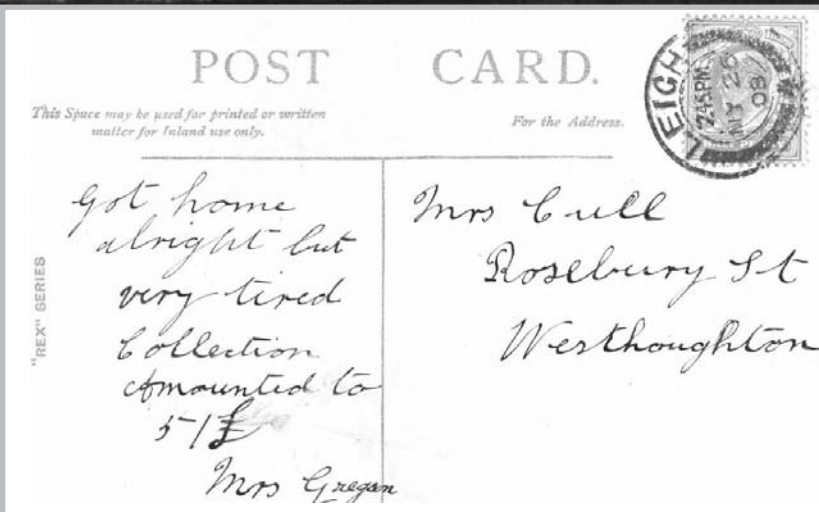 POST CARD.
This Space may be used for printed or written
matter for Inland use only.
For the Address.
LEIGH
2.45PM
MY 26
08
"REX" SERIES
Got home
alright but
very tired
Collection
Amounted to
51£
Mrs Gregson
Mrs Cull
Rosebury St
Westhoughton